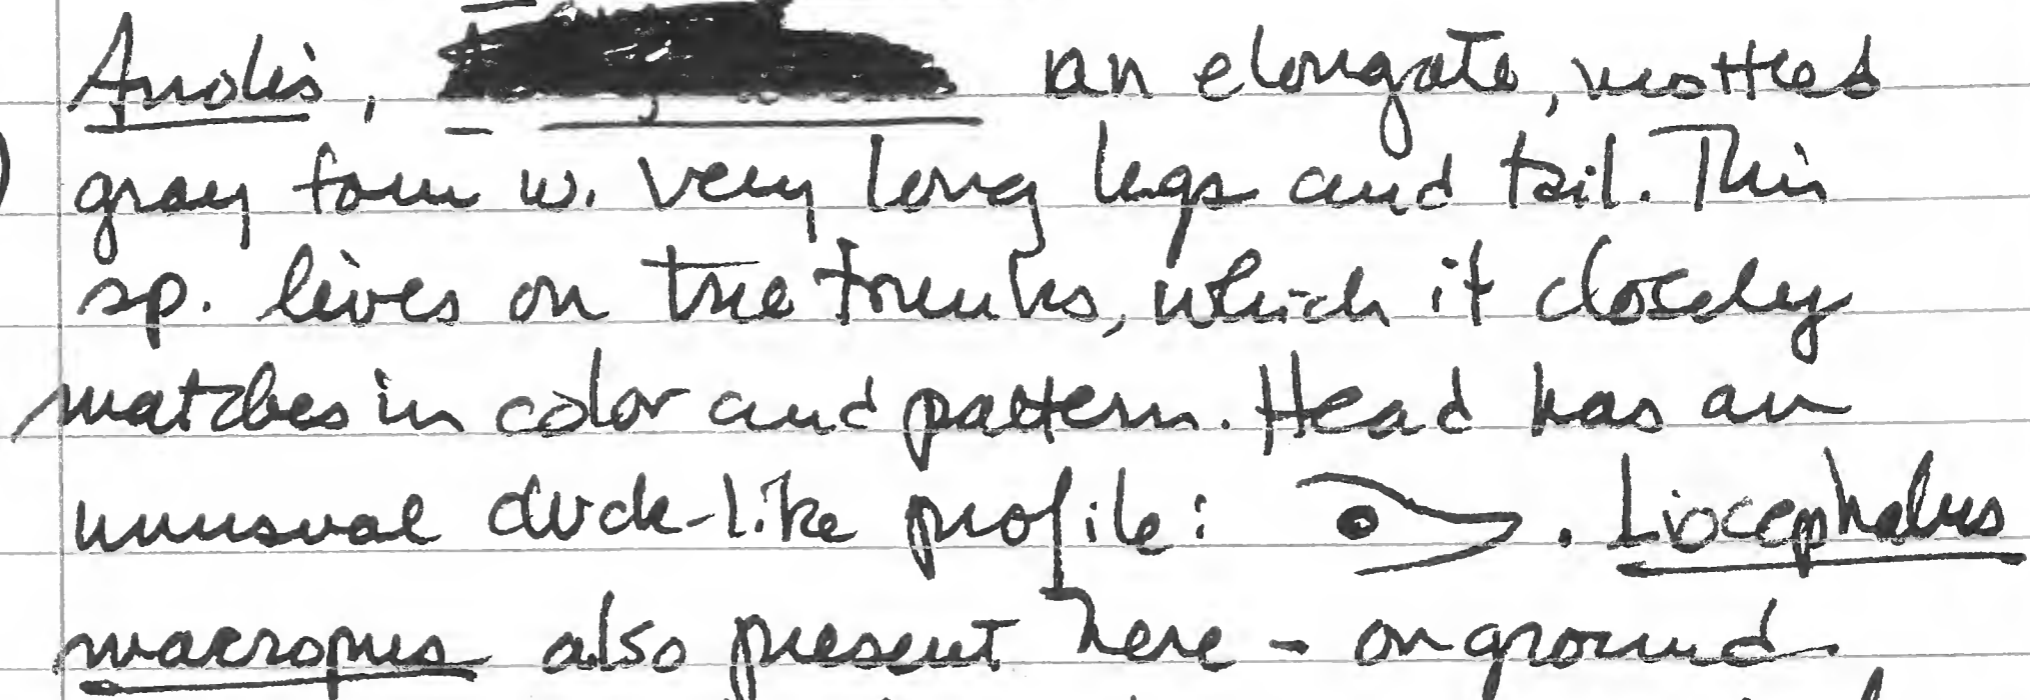 Anolis, an elongate, mottled
gray form w. very long legs and tail. This
sp. lives on tree trunks, which it closely
matches in color and pattern. Head has an
unusual duck-like profile: . Liocephalus
macropus also present here - on ground.